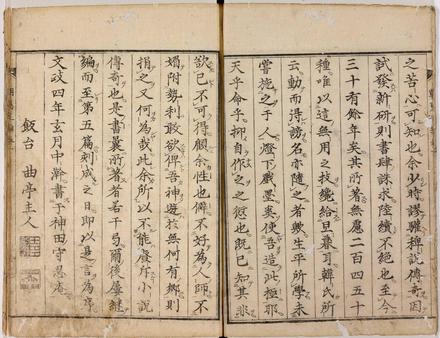 之苦心可知也余少時謬雅稗說傳奇因
試發新研則書肆誅求陸續不絕也至今
三十有餘年矣其所著無慮二百四五十
種唯以這無用之技纔給旦暮耳韓氏所
云動而得謗名亦隨之者數生平所學未
嘗施之于人燈下戲墨矣使吾造此極耶
天乎命乎抑自作之之愆也既已知其非
欲已不可得顧余性也僻不好為人師不
媚附勢利敢欲俾吾神遊於無何有鄉則
捐之又何為哉此余所以不能廢斥小說
傳奇也是書曩所著者若干局爾後屢継
編而至第五篇刻成之日即以是言為序
文政四年玄月中幹書于神田守忍庵
飯台 曲亭主人